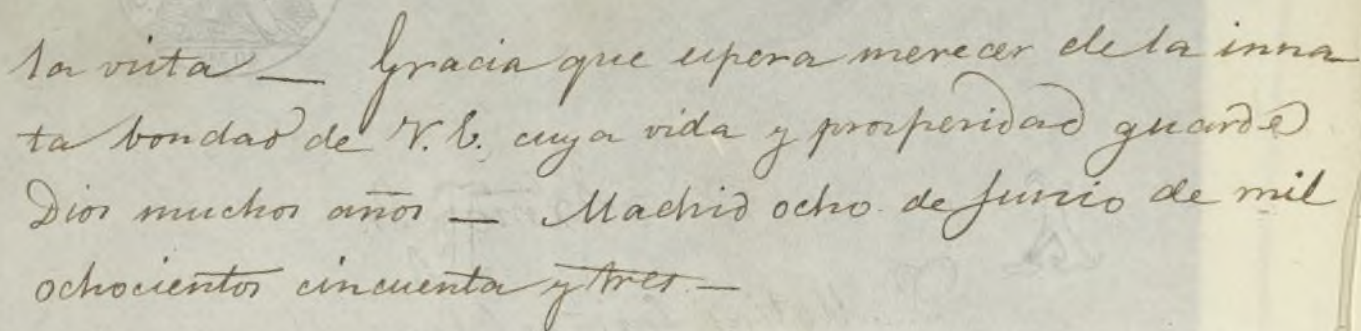 la vista — Gracia que espera merecer de la inna-
ta bondad de V. E. cuya vida y prosperidad guarde
Dios muchos años — Madrid ocho de Junio de mil
ochocientos cincuenta y tres —